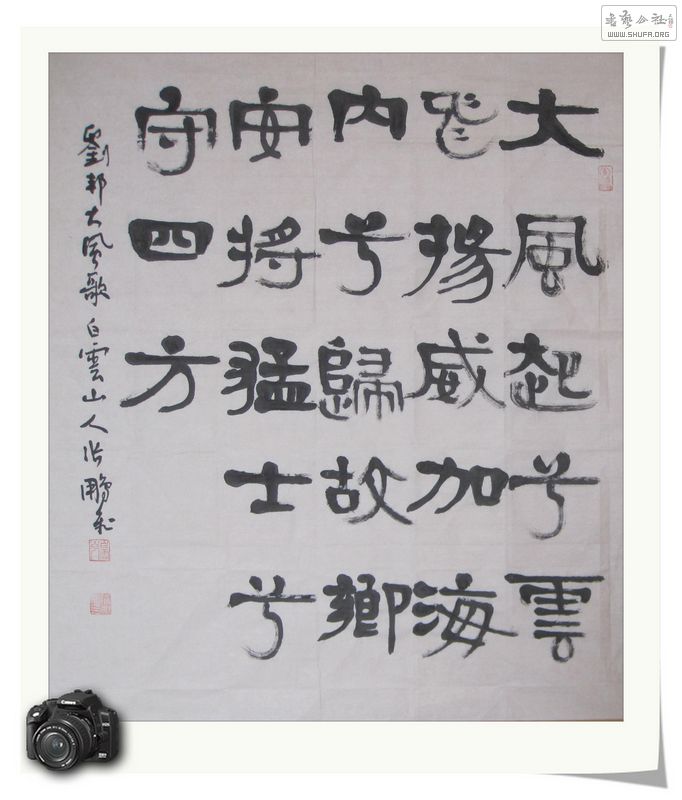 大風起兮雲
飛揚威加海
内兮歸故鄉
安将猛士兮
守四方
劉邦大風歌白雲山人张鵬
書藝公社
WWW.SHUFA.ORG
Canon